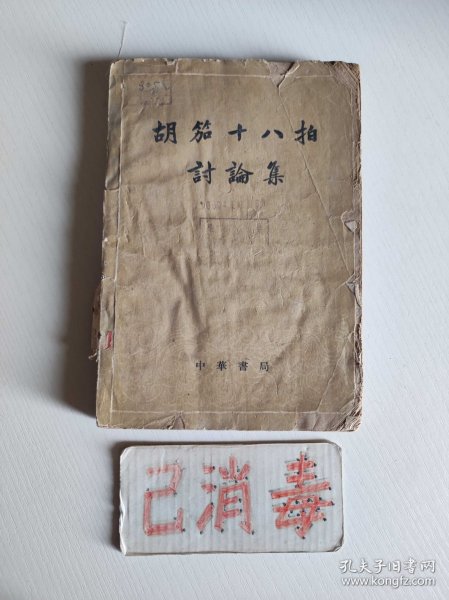 胡笳十八拍
討論集
中華書局
己消毒
孔夫子旧书网
www.kongfz.com